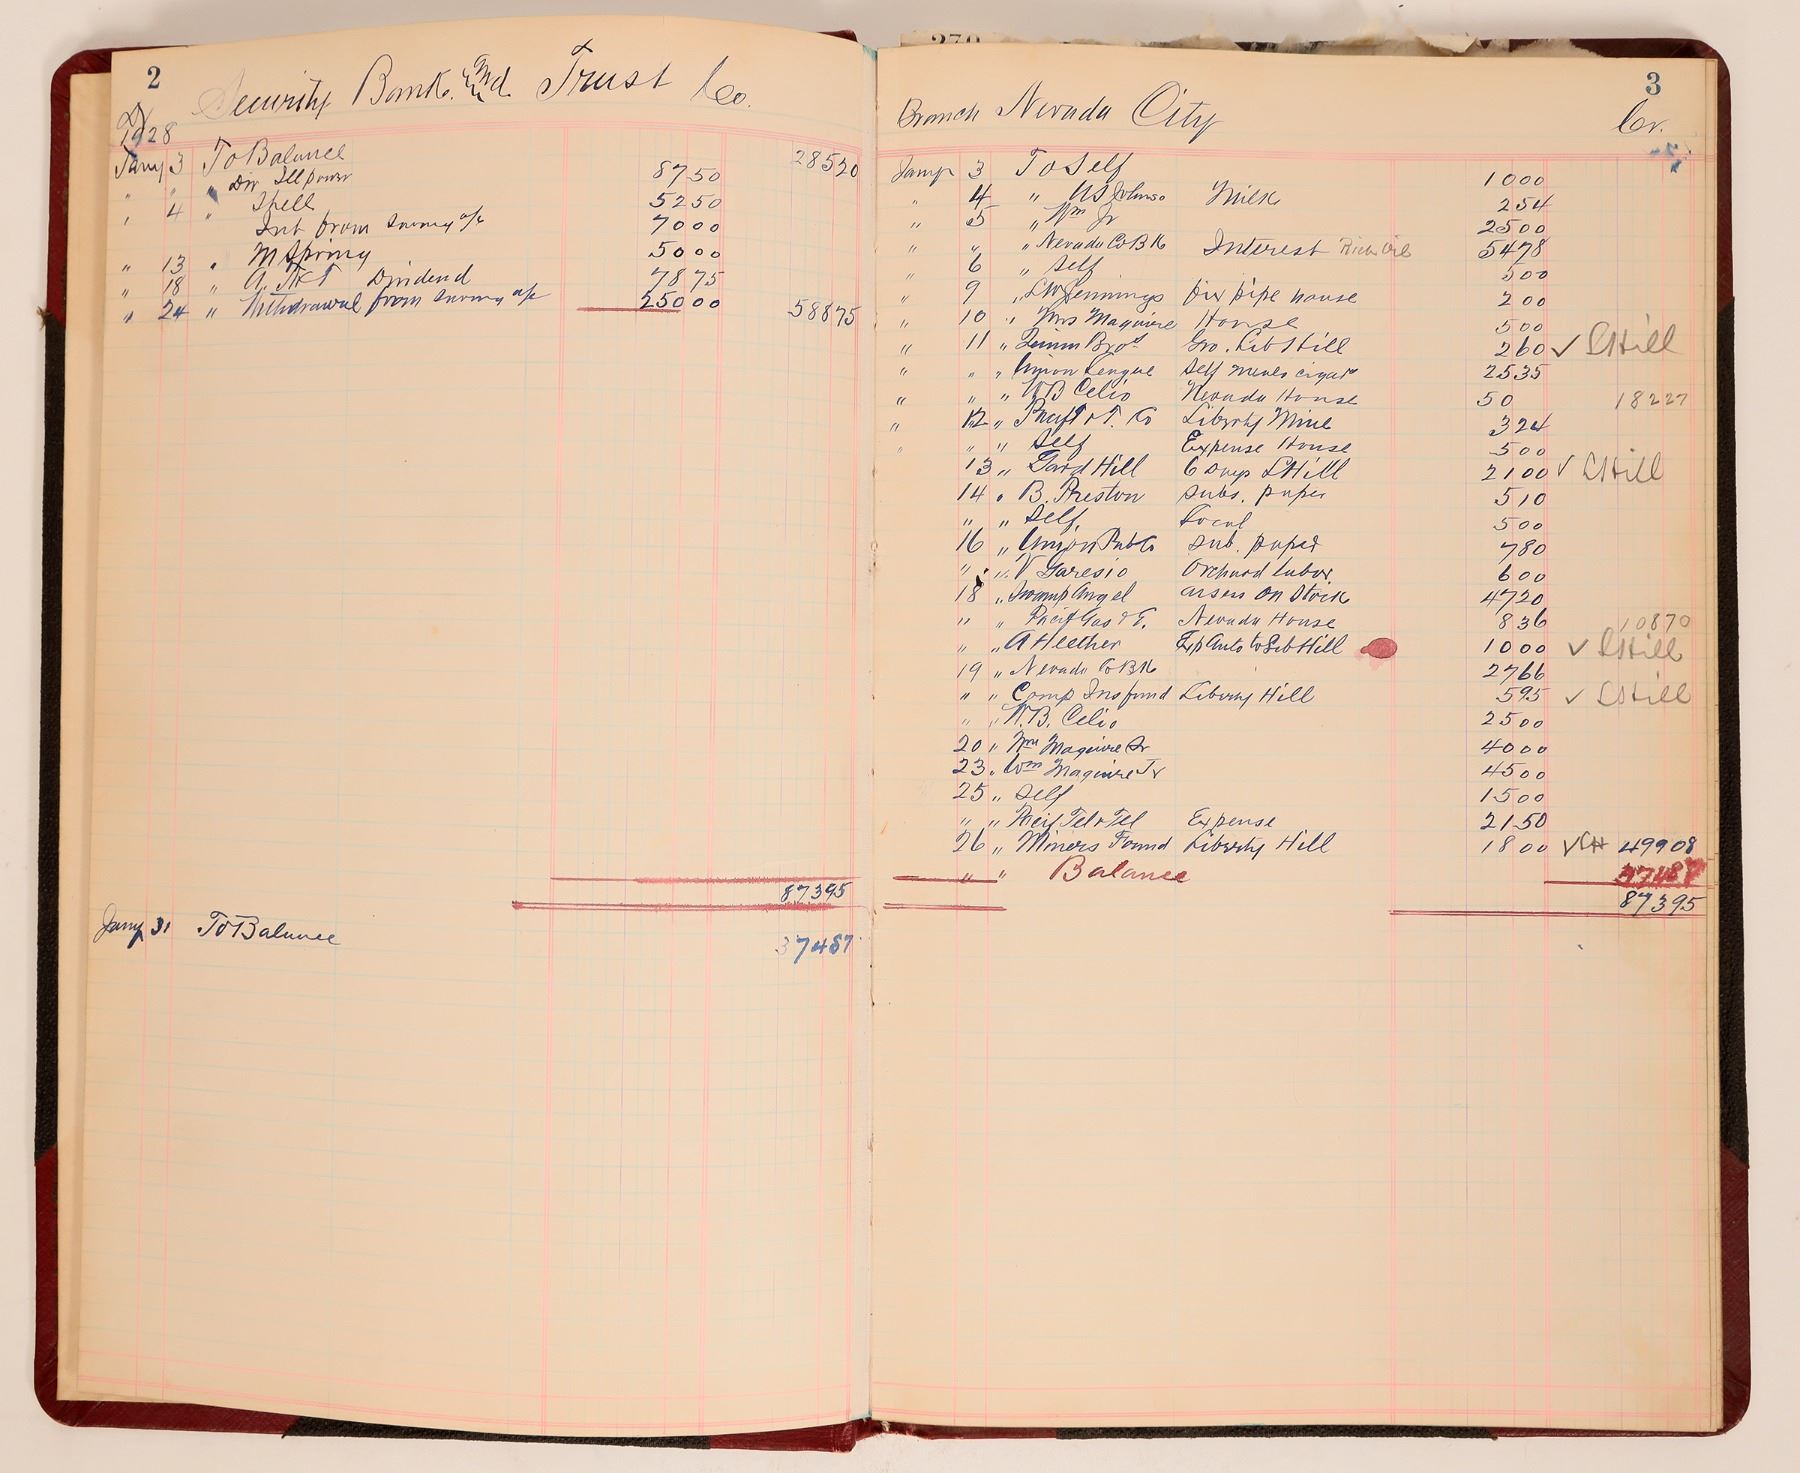 2
Security Bank and Trust Co.
Dr
1928
Jany 3 To Balance 28520
" " " Div Ill power 8750
" 4 " Shell 5250
Int from Savings a/c 7000
M Spring 5000
" 13 "
" 18 " A. T&T Dividend 7875
" 24 " Withdrawal from Savings a/c 25000 58875
87395
Jany 31 To Balance 37487
270
3
Branch Nevada City Cr.
Jany 3 To Self 1000
" 4 " Johnson Milk 254
" 5 " Wm Jr 2500
" " " Nevada Co Bk Interest 5478
" 6 " Self 500
" 9 " Jennings fix pipe house 200
" 10 " Mrs Maguire House 500
" 11 " Bros Gro. Lib Hill 260 ✓ LHill
" " " Union League Self cigars 2535
" " " W B Celio Nevada House 50 18227
" 12 " & T. Co Liberty Mine 324
" " " Self Expense House 500
13 " Ford Hill 6 Days LHill 2100 ✓ LHill
14 " B. Preston subs. paper 510
" " Self. 500
16 " Union Pub Co sub. paper 780
" " V Garesio Orchard labor 600
18 " Swamp Angel assess on Stock 4720
" " Pacif Gas & E. Nevada House 836 10870
" " A Heether Exp Auto to Lib Hill 1000 ✓ LHill
19 " Nevada Co Bk 2766
" " Comp Ins fund Liberty Hill 595 ✓ LHill
" " W. B. Celio 2500
20 " Wm Maguire Sr 4000
23 " Wm Maguire Jr 4500
25 " Self 1500
" " Pacif Tel & Tel Expense 2150
26 " Miners Found Liberty Hill 1800 ✓ LH 49908
" " Balance 37487
87395